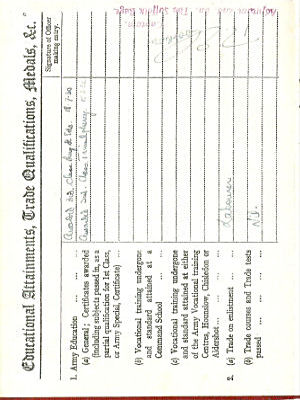 Educational Attainments, Trade Qualifications, Medals, &c.
Signature of Officer
making entry.
1. Army Education ... ...
(a) General; Certificates awarded
(including subjects passed in, as a
partial qualification for 1st Class,
or Army Special, Certificate) ...
Awarded 3rd Class Army
Awarded 2nd Class
(b) Vocational training undergone
and standard attained at a
Command School ... ...
(c) Vocational training undergone
and standard attained at either
of the Army Vocational training
Centres, Hounslow, Chisledon or
Aldershot ... ... ...
2. (a) Trade on enlistment ...
Labourer
(b) Trade courses and Trade tests
passed ... ... ...
Nil.
Captain
Suffolk Regt